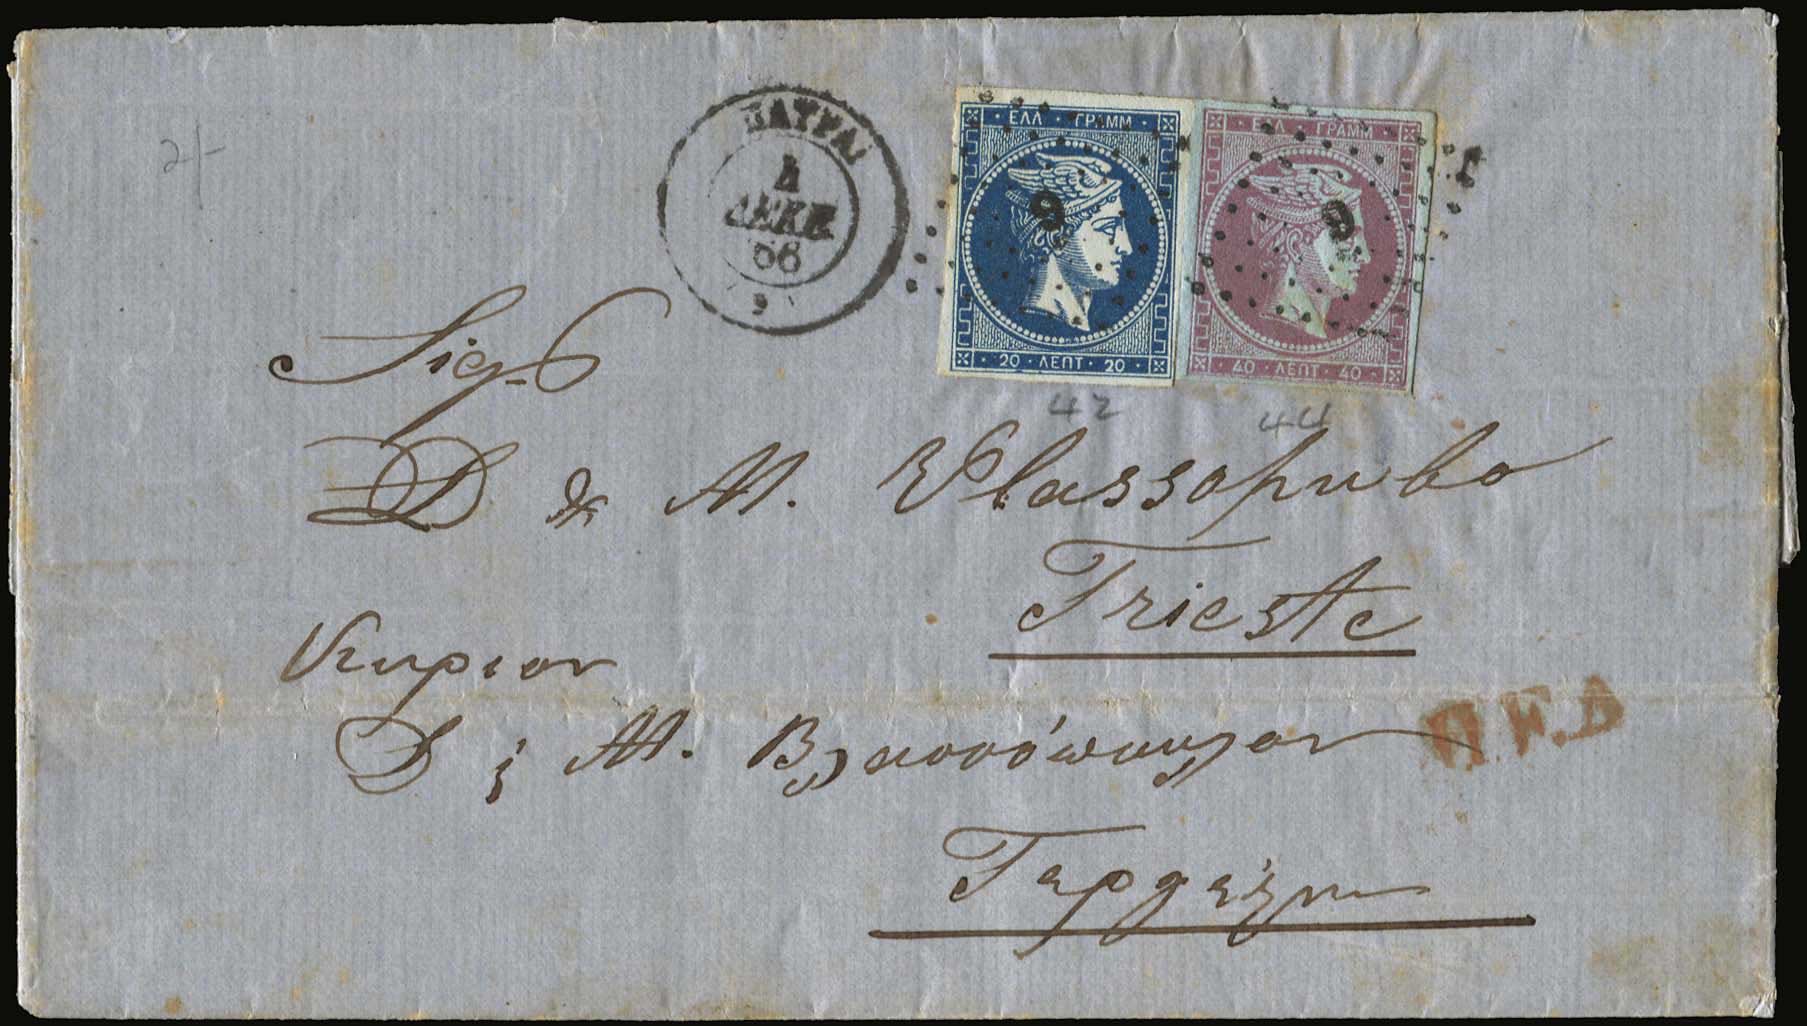 2/-
ΠΑΤΡΑΙ
4
ΔΕΚΕ.
66
9
ΕΛΛ · ΓΡΑΜΜ
9
20 · ΛΕΠΤ · 20
ΕΛΛ · ΓΡΑΜΜ
9
40 · ΛΕΠΤ · 40
42
44
Sig
D & M. Vlassopulo
Trieste
Κυριον
D & M. Βλασσόπουλον
P.D.
Τεργέστην